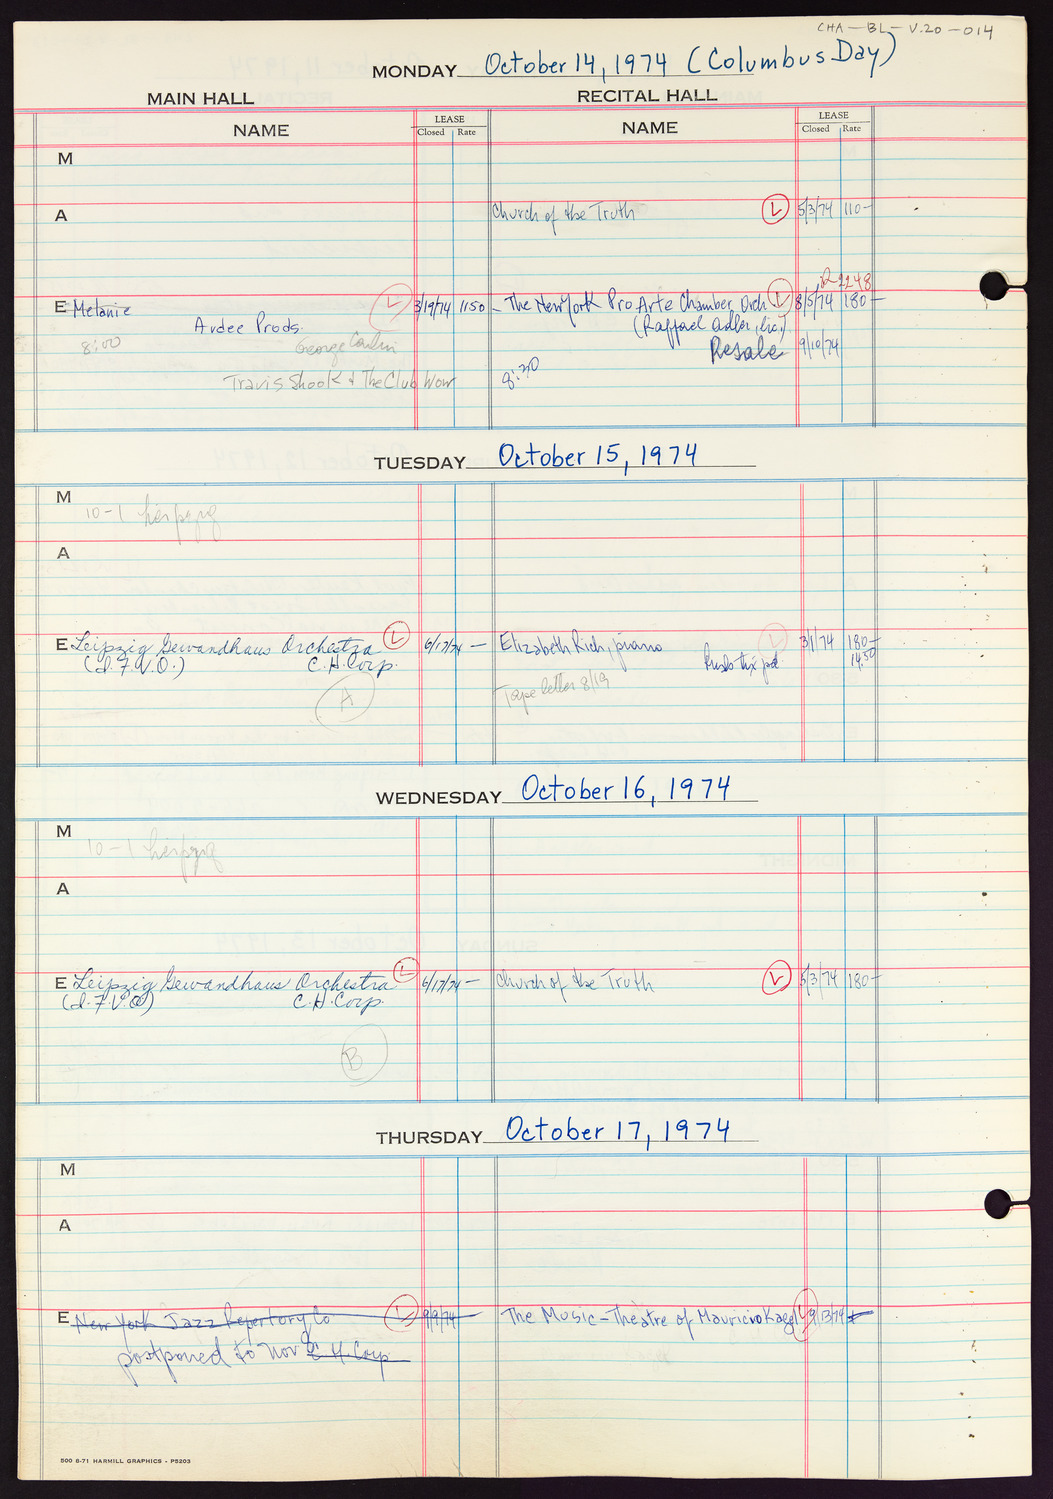 CHA-BL-V.20-014
MONDAY October 14, 1974 (Columbus Day)
MAIN HALL RECITAL HALL
NAME LEASE Closed Rate NAME LEASE Closed Rate
M
A Church of the Truth L 5/3/74 110-
R 2248
E Melanie L 3/19/74 1150- The New York Pro Arte Chamber Orch L 8/5/74 180-
Avdee Prods. (Raffael Adler, Inc.)
8:00 George Carlin Resale 9/10/74
Travis Shook & The Club Wow 8:30
TUESDAY October 15, 1974
M 10-1 Leipzig
A
E Leipzig Gewandhaus Orchestra L 6/17/74 - Elizabeth Rich, piano L 3/1/74 180-
(I.F.V.O.) C.H. Corp. 14.50
A Tape letter 8/19
WEDNESDAY October 16, 1974
M 10-1 Leipzig
A
E Leipzig Gewandhaus Orchestra L 6/17/74 - Church of the Truth L 5/3/74 180-
(I.F.V.O) C.H. Corp.
B
THURSDAY October 17, 1974
M
A
E New York Jazz Repertory Co L 9/9/74 - The Music-Theatre of Mauricio Kagel L 9/13/74
postponed to Nov C H Corp
500 8-71 HARMILL GRAPHICS - P5203